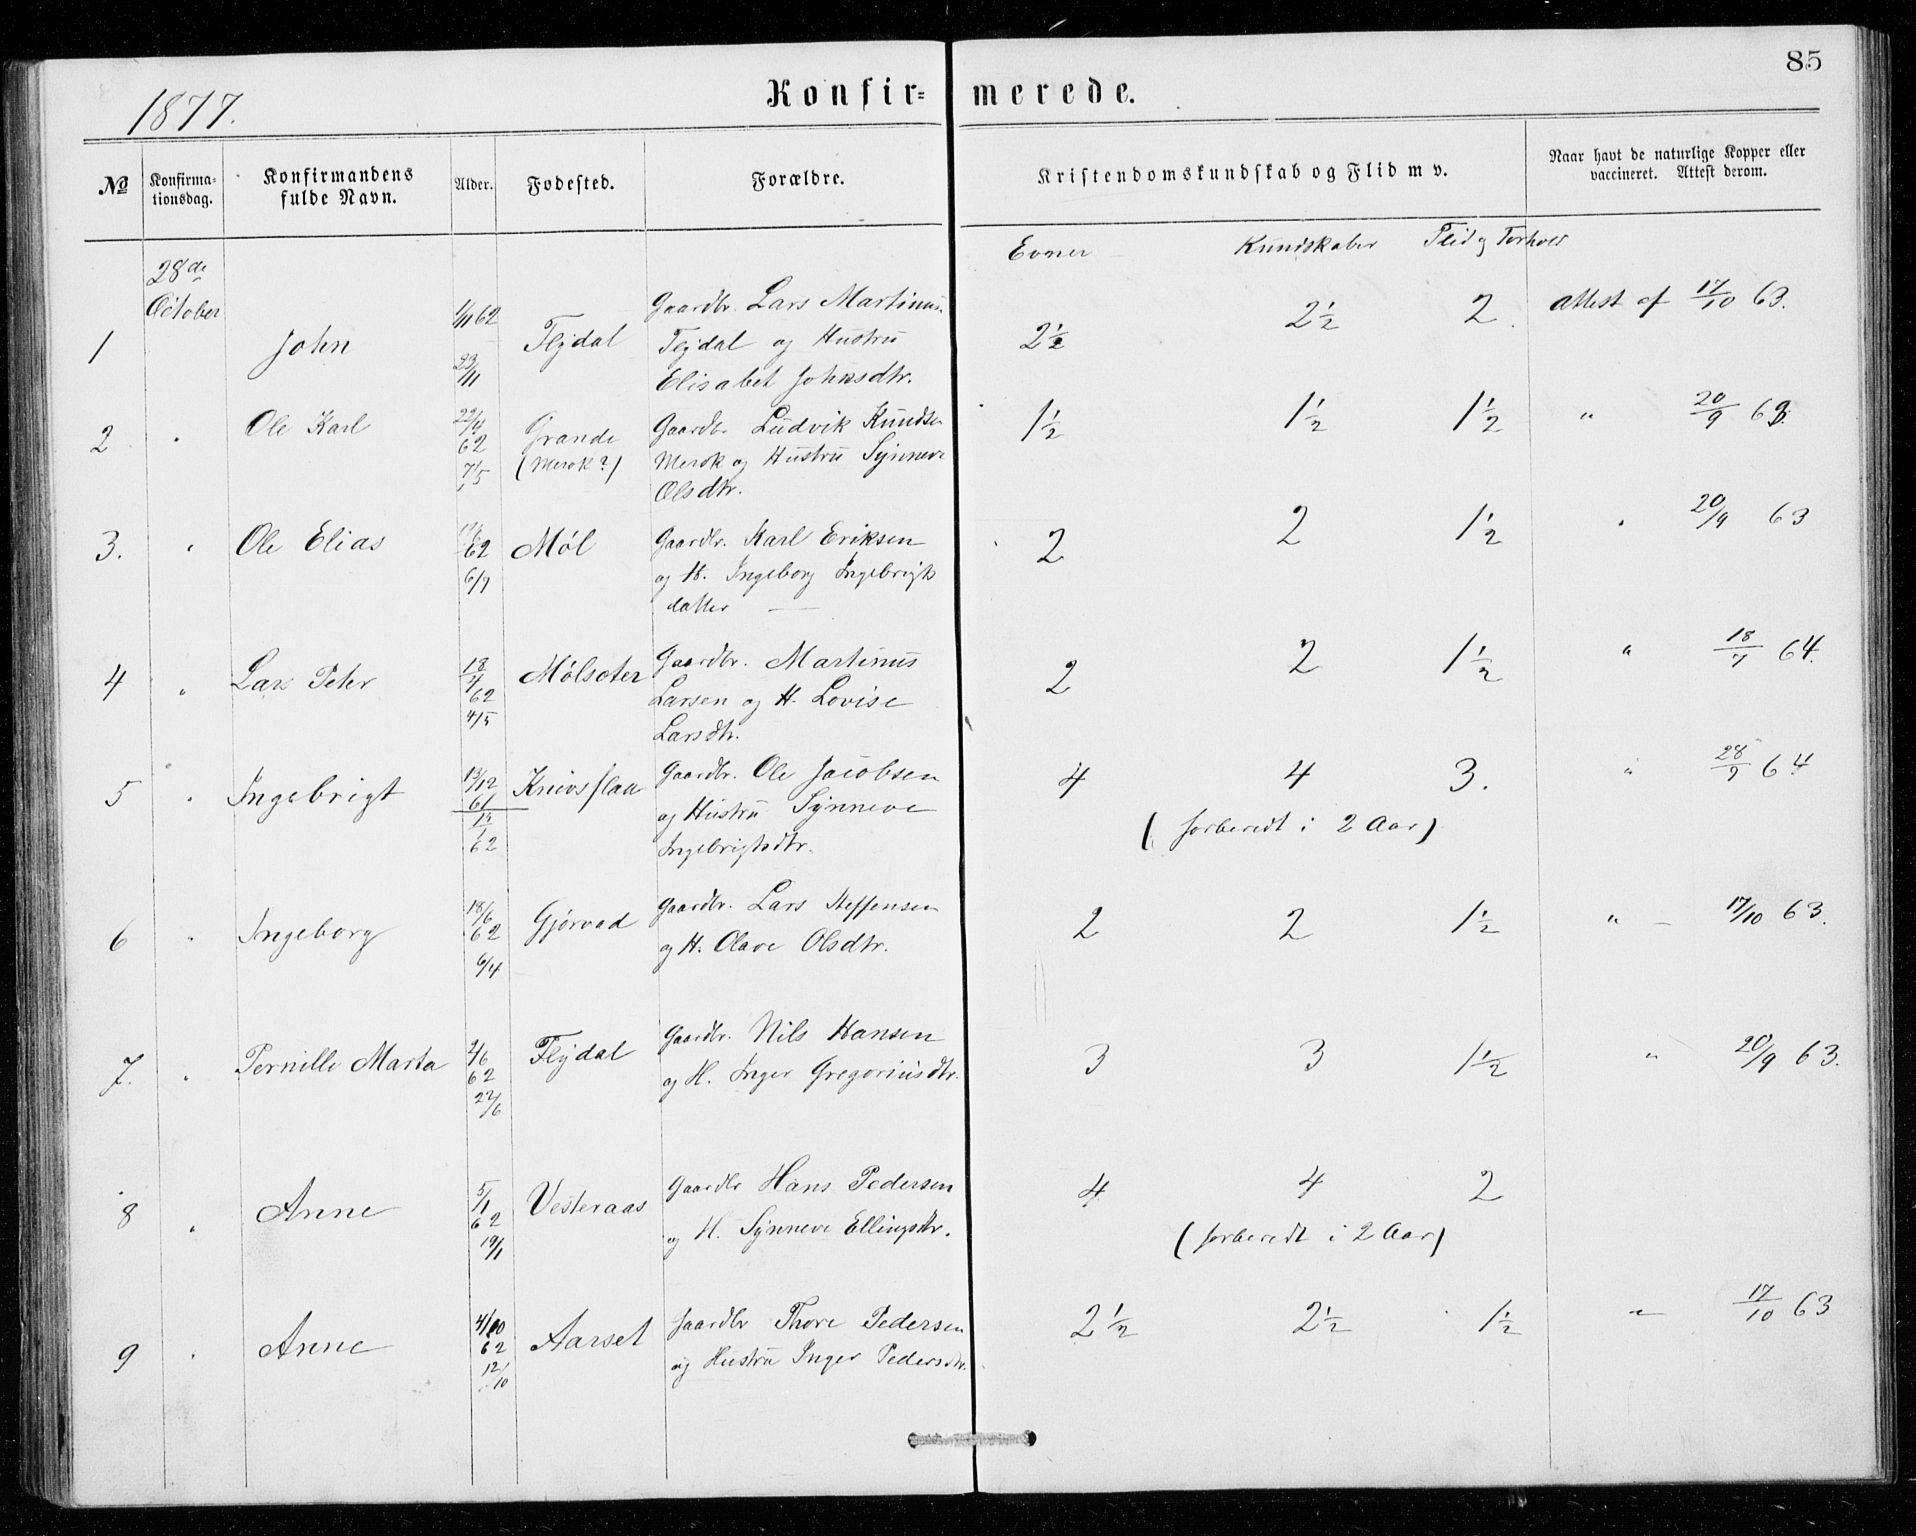 85
1877.
Konfir= merede.
No Konfirma-tionsdag. Konfirmandens fulde Navn. Alder. Fødested. Forældre. Kristendomskundskab og Flid m v. Naar havt de naturlige Kopper eller vaccineret. Attest derom.
Evner Kundskaber Flid og Forhold
28de October
1 John 1/11 62 23/11 Flydal Gaardbr. Lars Martinus. 2½ 2½ 2 attest af 17/10 63.
Flydal og Hustru
Elisabet Johnsdtr.
2 " Ole Karl 22/4 62 7/5 Grande (Merok?) Gaardbr Ludvik Knudsen 1½ 1½ 1½ " 20/9 63.
Merok og Hustru Synneve
Olsdtr.
3. " Ole Elias 62 6/7 Møl Gaardbr. Karl Eriksen 2 2 1½ " 20/9 63
og H. Ingeborg Ingebrigts
datter —
4 " Lars Peter 18/4 62 4/5 Mølsæter Gaardbr. Martinus 2 2 1½ " 18/7 64.
Larsen og H. Lovise
Larsdtr.
5 " Ingebrigt 13/12 61 12/1 62 Knivsflaa Gaardbr. Ole Jacobsen 4 4 3. " 28/7 64
og Hustru Synneve (forberedt i 2 Aar)
Ingebrigtsdtr.
6 " Ingeborg 18/6 62 6/4 Gjørvad Gaardbr. Lars Steffensen 2 2 1½ " — 17/10 63.
og H. Olave Olsdtr.
7. " Pernille Marta 2/6 62 22/6 Flydal Gaardbr. Nils Hansen 3 3 1½ " 20/9 63.
og H. Inger Gregoriusdtr.
8 " Anne 5/1 62 19/1 Vesteraas Gaardbr Hans Pedersen 4 4 2
og H. Synneve Ellingsdtr. (forberedt i 2 Aar)
9 " Anne 4/10 62 12/10 Aarset Gaardbr Thore Pedersen 2½ 2½ 1½ " 17/10 63
og Hustru Inger Pedersdtr.